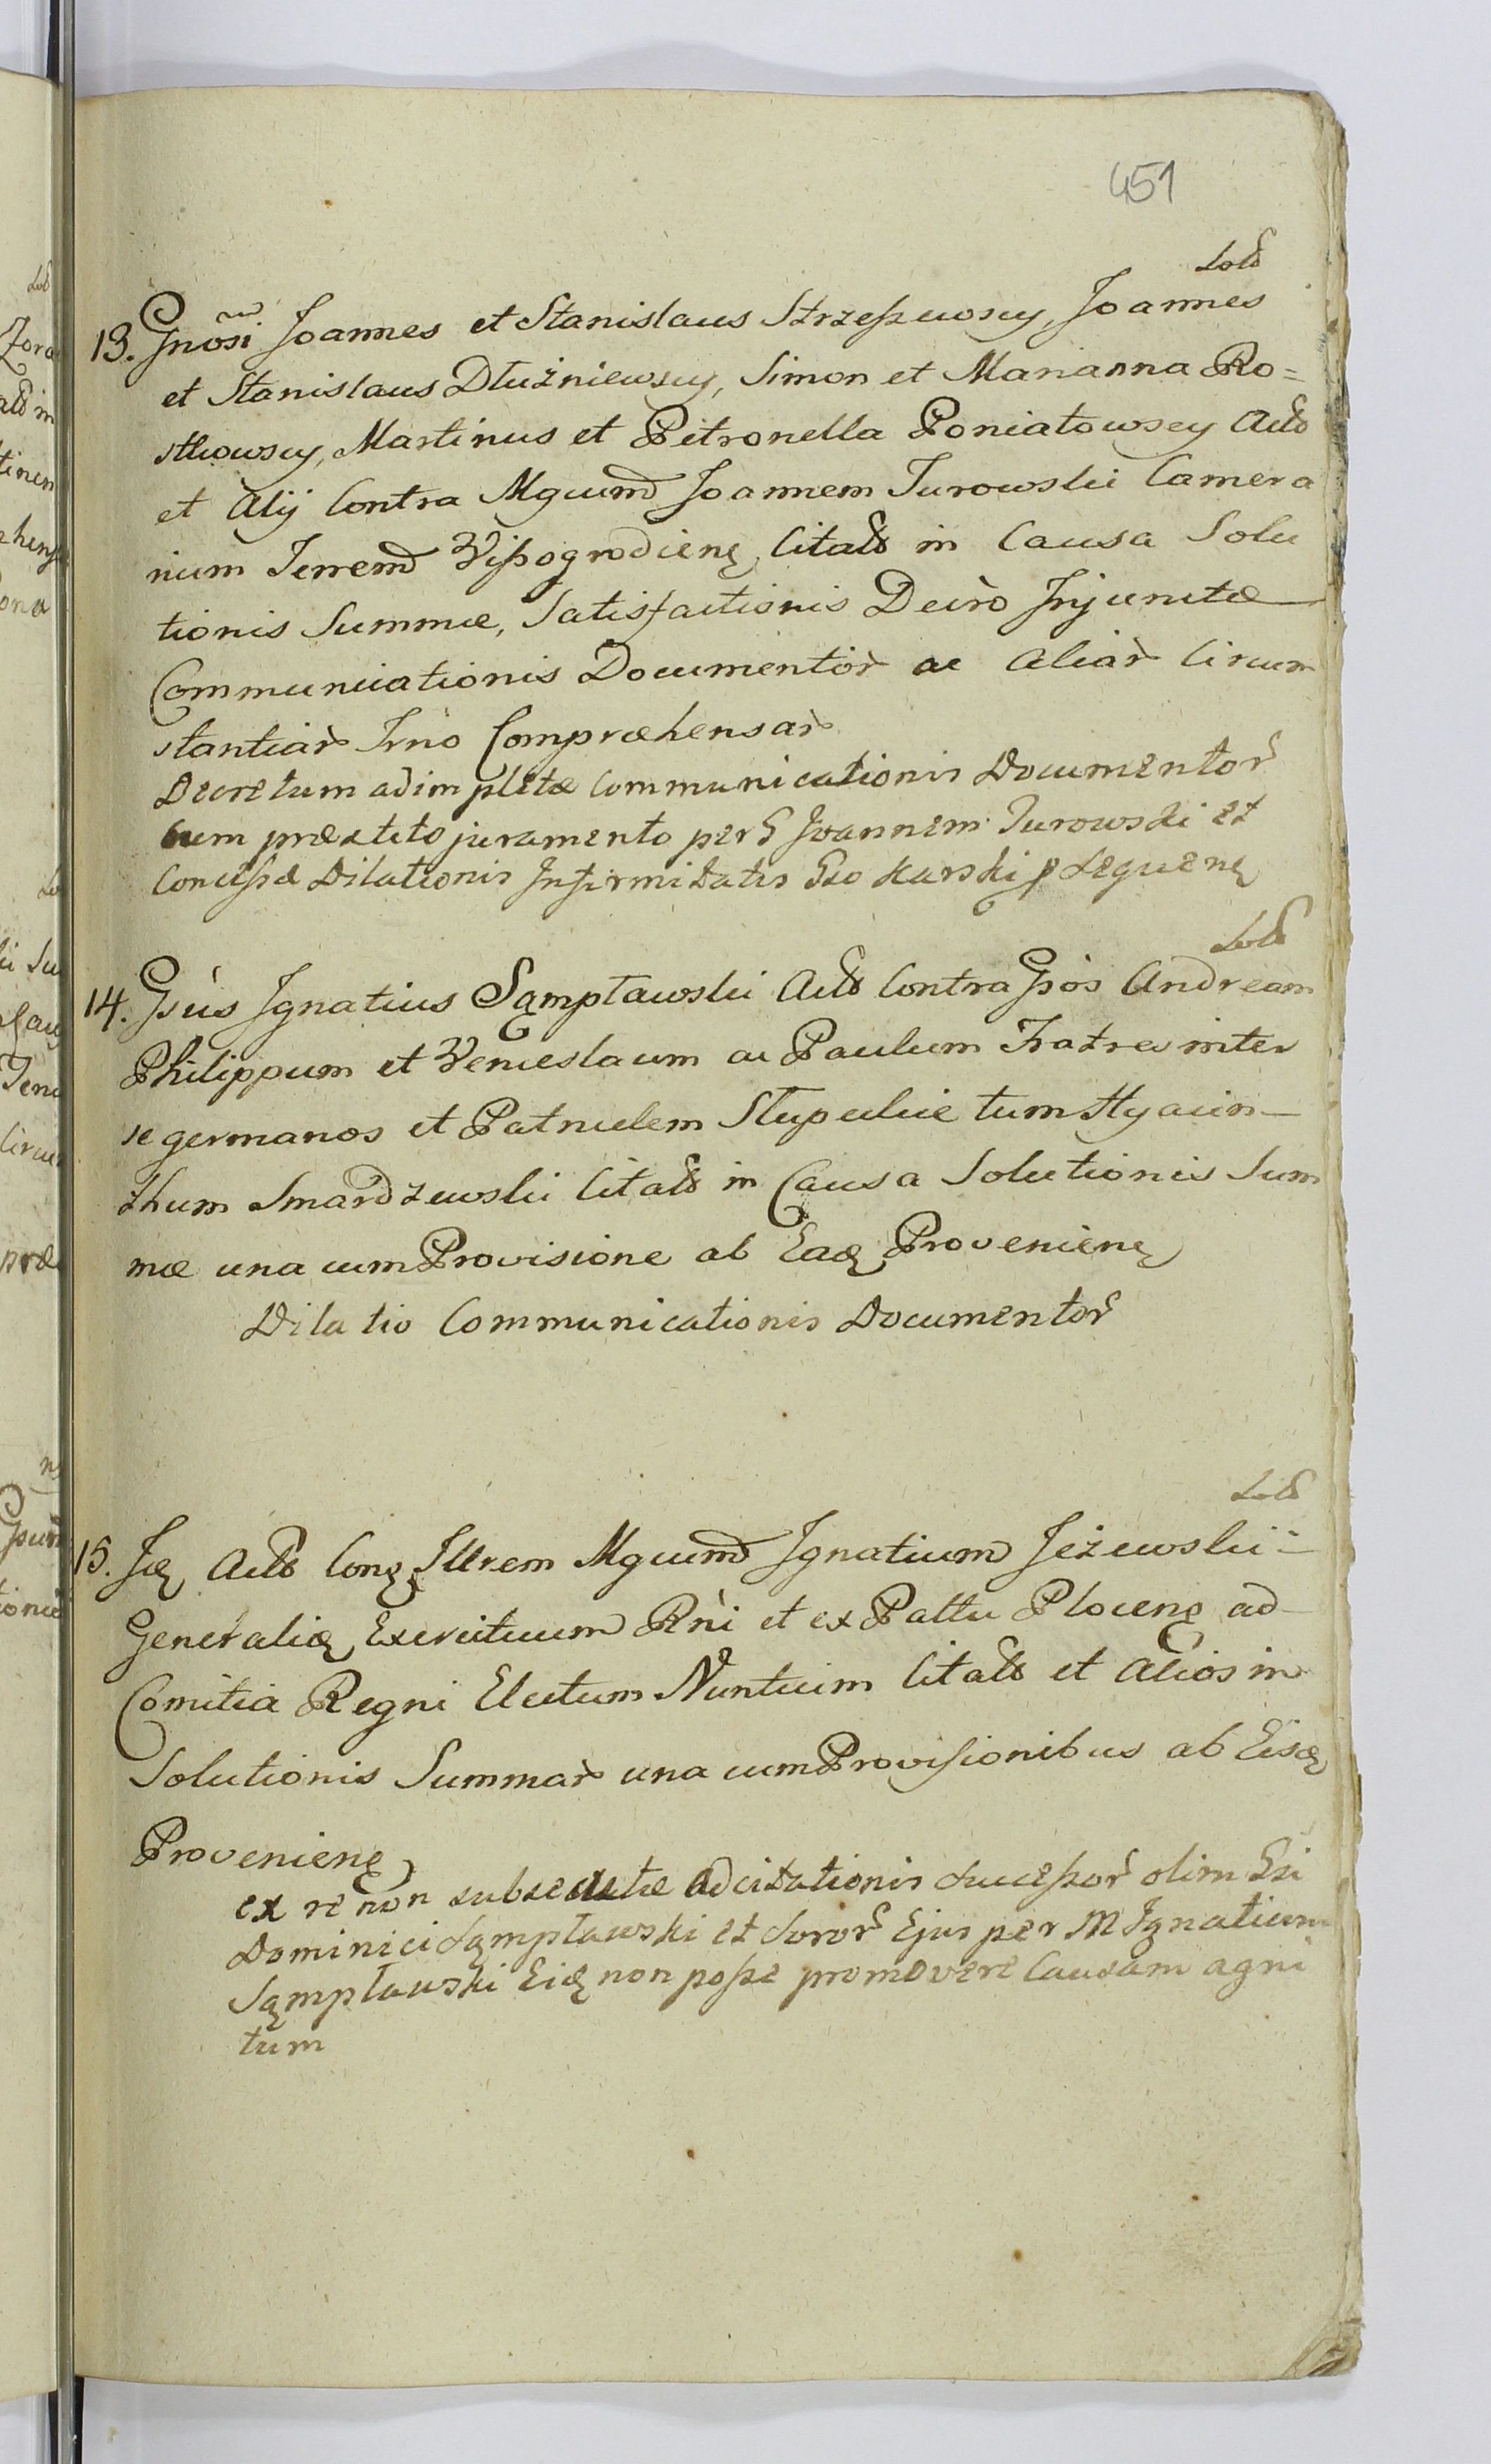 451
13. Gnosi Joannes et Stanislaus Strzeszewscy, Joannes
et Stanislaus Dłużniewscy, Simon et Marianna Ro=
stkowscy, Martinus et Petronella Poniatowscy Act
et Alij Contra Mgcum Joannem Turowski Camera
rium Terrem Wissogrodien Citat in Causa Solu
tionis Summæ, Satisfactionis Decro Injunctæ
Communicationis Documentor ac aliar Circum
stantiar Trno Compræhensar
Decretum adimpletæ Communicationis Documentor
cum præstito juramento per G Joannem Turowski et
Concessæ Dilationis Infirmitatis Gso Karski p sequen
14. Gsus Ignatius Sąmpławski Act Contra Gsos Andream
Philippum et Venceslaum ac Paulum Fratres inter
se germanos et Patruelem Słupeckie tum Hyacin
thum Smardzewski Citat in Causa Solutionis Sum
mæ una cum Provisione ab Ead Provenien
Dilatio Communicationis Documentor
15. Id Act Con Illrem Mgcum Ignatium Jeżewski
General Exercituum Rni et ex Pallu Plocen ad
Comitia Regni Electum Nuntium Citat et Alios in
Solutionis Summar una cum Provisionibus ab Eisd
Provenien
ex re non subsecutæ adcitationis Successor olim Gsi
Dominici Sąmpławski et Soror Ejus per M Ignatium
Sąmpławski Eid non posse promovere Causam agni
tum